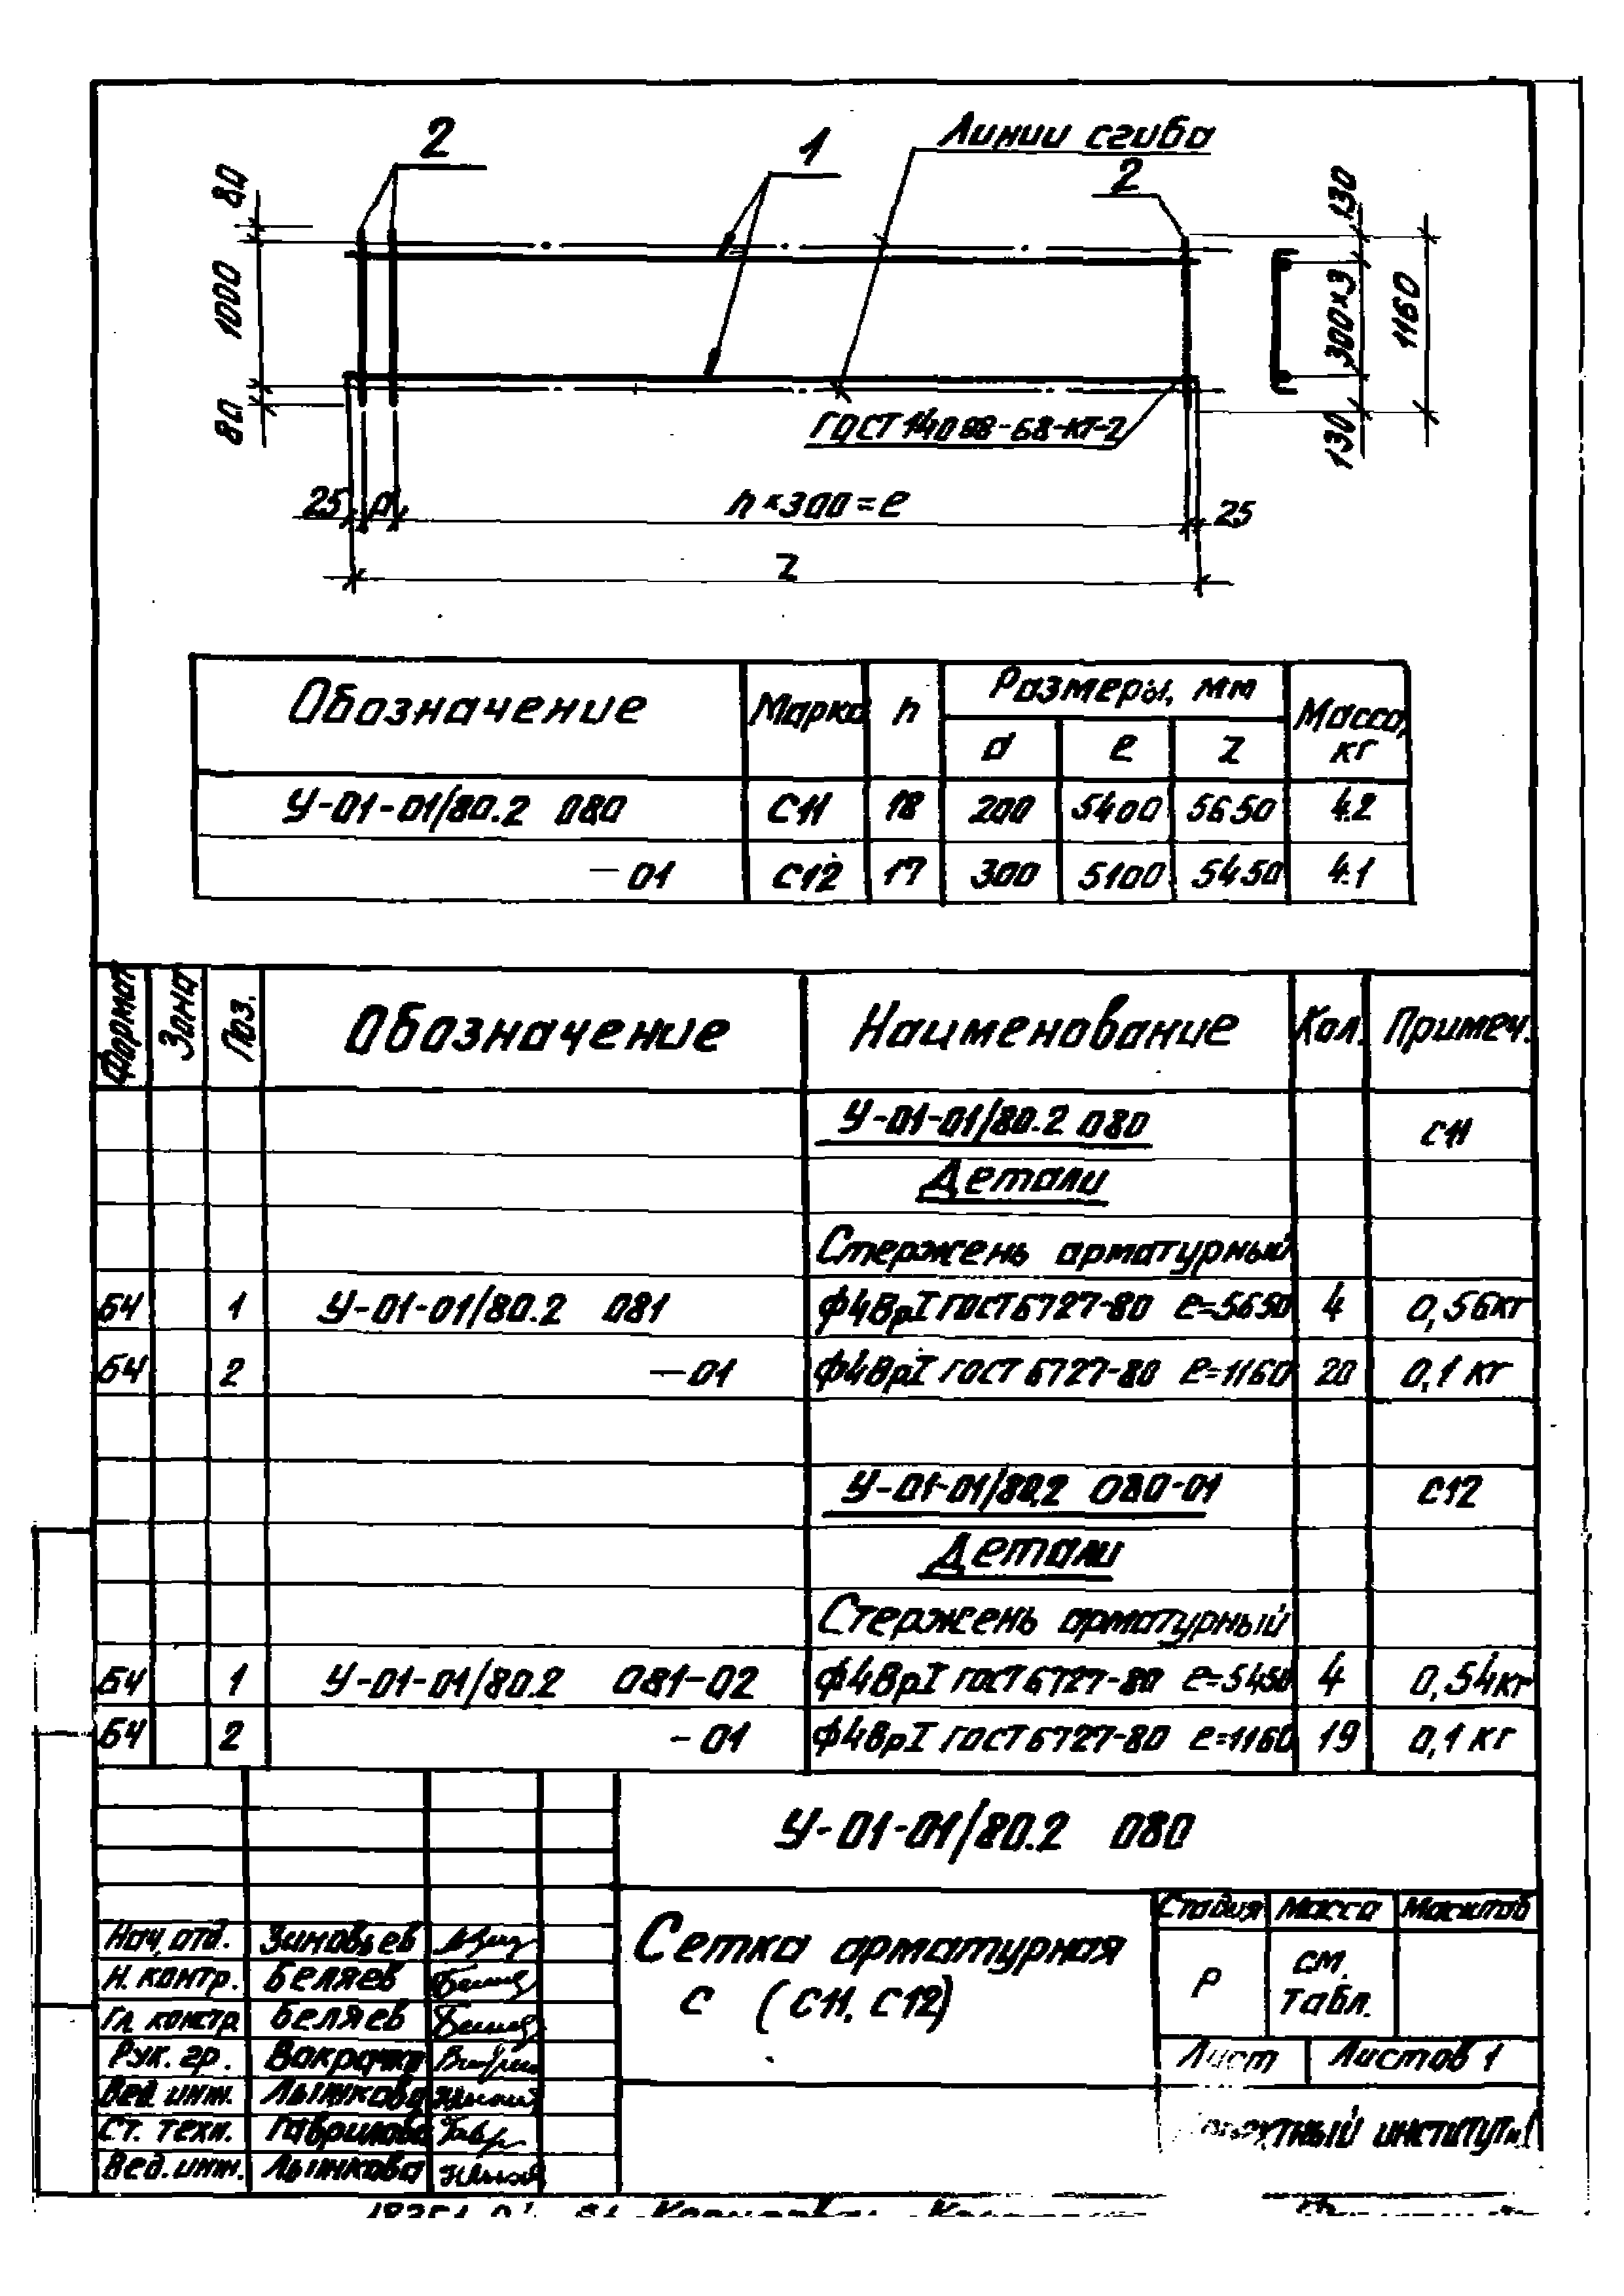 2
1
Линии сгиба
2
80
1000
80
130
300×3
130
1160
ГОСТ 14098-68-КТ-2
25
а
h×300=е
25
z
Обозначение Марка h Размеры, мм Масса, кг
а е z
У-01-01/80.2 080 С11 18 200 5400 5650 4.2
-01 С12 17 300 5100 5450 4.1
Формат Зона Поз. Обозначение Наименование Кол. Примеч.
У-01-01/80.2 080 С11
Детали
Стержень арматурный
БЧ 1 У-01-01/80.2 081 ф4ВрI ГОСТ 6727-80 е=5650 4 0,56кг
БЧ 2 -01 ф4ВрI ГОСТ 6727-80 е=1160 20 0,1 кг
У-01-01/80.2 080-01 С12
Детали
Стержень арматурный
БЧ 1 У-01-01/80.2 081-02 ф4ВрI ГОСТ 6727-80 е=5450 4 0,54кг
БЧ 2 -01 ф4ВрI ГОСТ 6727-80 е=1160 19 0,1 кг
У-01-01/80.2 080
Нач. отд. Зиновьев
Н. контр. Беляев
Гл. констр. Беляев
Рук. гр.
Вед. инж. Лымкова
Ст. техн. Гаврилова
Вед. инж. Лымкова
Сетка арматурная
С (С11, С12)
Стадия Масса Масштаб
Р см. табл.
Лист Листов 1
институт